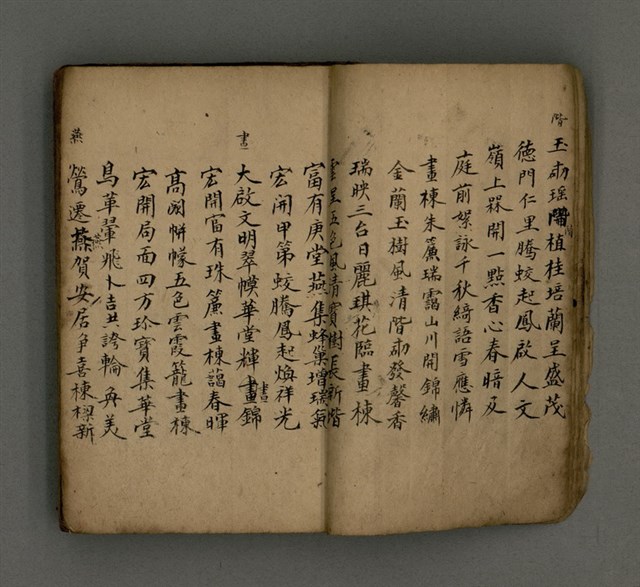 階
玉砌瑤階植桂培蘭呈盛茂
德門仁里騰蛟起鳳啟人文
嶺上槑開一點香心春暗及
庭前絮詠千秋綺語雪應憐
畫棟朱簾瑞靄山川開錦繡
金蘭玉樹風清階砌發馨香
瑞映三台日麗琪花臨畫棟
雲呈五色風清寶樹長新階
富有庚堂燕集蜂巢增瑞氣
宏開甲第蛟騰鳳起煥祥光
畫
大啟文明翠幙華堂輝畫錦
宏開富有珠簾畫棟藹春暉
高閎帡幪五色雲霞籠畫棟
宏開局面四方珍寶集華堂
鳥革翬飛卜吉共誇輪奐美
燕
鶯遷燕賀安居爭喜棟樑新